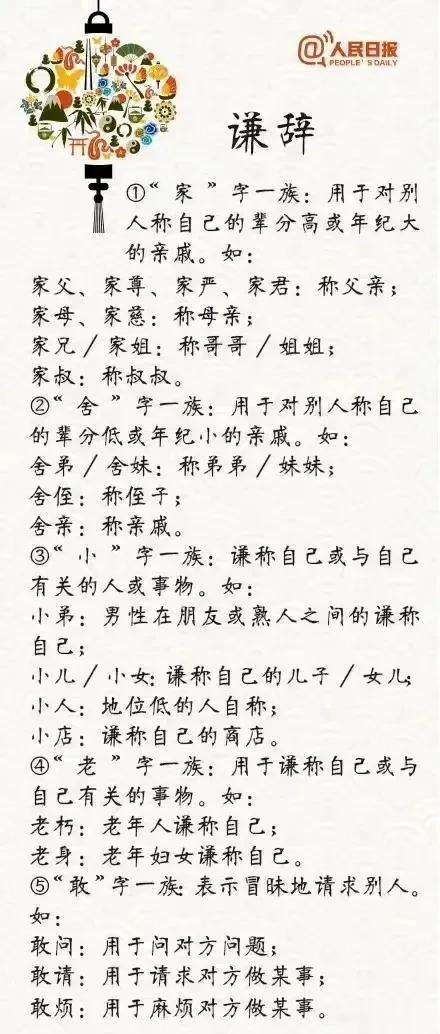 @人民日报
PEOPLE'S DAILY
谦辞
①“家”字一族：用于对别
人称自己的辈分高或年纪大
的亲戚。如：
家父、家尊、家严、家君：称父亲；
家母、家慈：称母亲；
家兄／家姐：称哥哥／姐姐；
家叔：称叔叔。
②“舍”字一族：用于对别人称自己
的辈分低或年纪小的亲戚。如：
舍弟／舍妹：称弟弟／妹妹；
舍侄：称侄子；
舍亲：称亲戚。
③“小”字一族：谦称自己或与自己
有关的人或事物。如：
小弟：男性在朋友或熟人之间的谦称
自己；
小儿／小女：谦称自己的儿子／女儿；
小人：地位低的人自称；
小店：谦称自己的商店。
④“老”字一族：用于谦称自己或与
自己有关的事物。如：
老朽：老年人谦称自己；
老身：老年妇女谦称自己。
⑤“敢”字一族：表示冒昧地请求别人。
如：
敢问：用于问对方问题；
敢请：用于请求对方做某事；
敢烦：用于麻烦对方做某事。